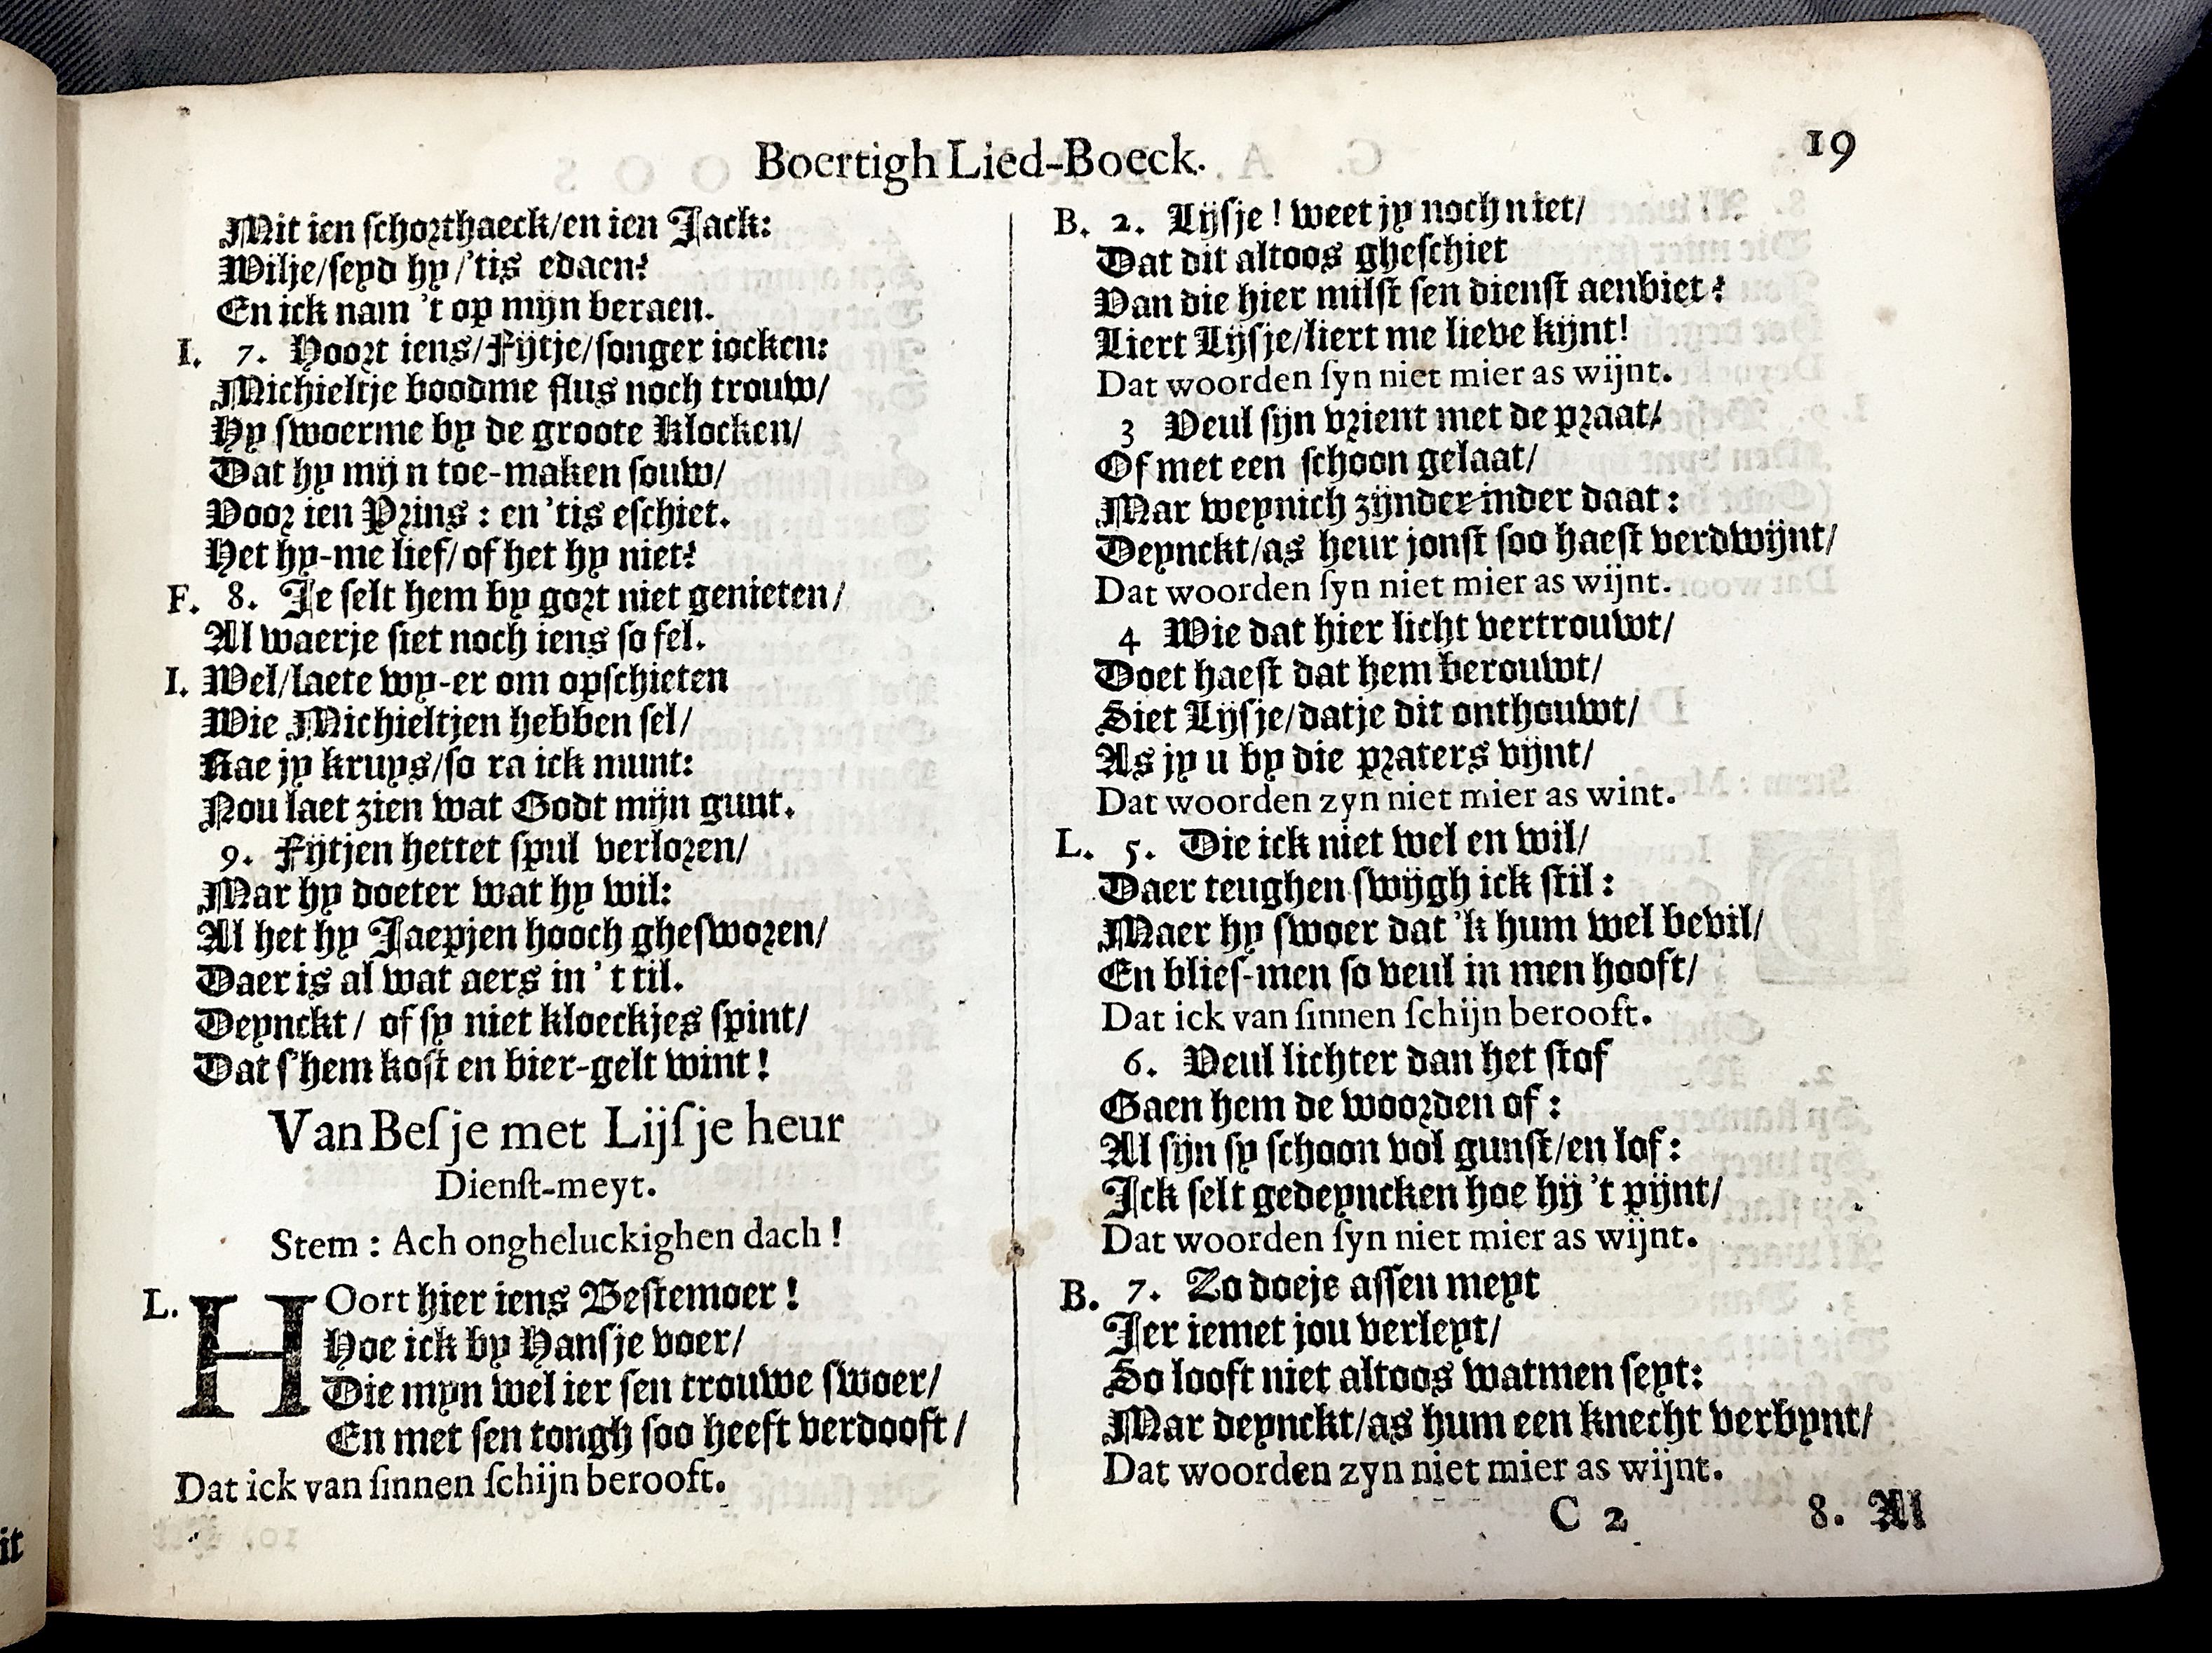 Boertigh Lied-Boeck.
19
Mit ien ſchorthaeck/en ien Jack:
Wilje/ſeyd hy/'tis edaen?
En ick nam 't op mijn beraen.
I. 7. Hoort iens/Fijtje/ſonger iocken:
Michieltje boodme flus noch trouw/
Hy ſwoerme by de groote Klocken/
Dat hy mijn toe-maken ſouw/
Voor ien Prins : en 'tis eſchiet.
Het hy-me lief/of het hy niet?
F. 8. Je ſelt hem by gort niet genieten/
Al waerje ſiet noch iens ſo fel.
I. Wel/laete wy-er om opſchieten
Wie Michieltjen hebben ſel/
Rae jy kruys/ſo ra ick munt:
Nou laet zien wat Godt mijn gunt.
9. Fijtjen hettet ſpul verloren/
Mar hy doeter wat hy wil:
Al het hy Jaepjen hooch gheſworen/
Daer is al wat aers in 't til.
Deynckt/ of ſy niet kloeckjes ſpint/
Dat ſ'hem koſt en bier-gelt wint!
Van Beſje met Lijſje heur
Dienſt-meyt.
Stem : Ach ongheluckighen dach!
L. HOort hier iens Beſtemoer!
Hoe ick by Hanſje voer/
Die myn wel ier ſen trouwe ſwoer/
En met ſen tongh ſoo heeft verdooft/
Dat ick van ſinnen ſchijn berooft.
B. 2. Lijsje! weet jy noch niet/
Dat dit altoos gheſchiet
Van die hier milſt ſen dienſt aenbiet?
Liert Lijsje/liert me lieve kijnt!
Dat woorden ſyn niet mier as wijnt.
3 Veul ſijn vrient met de praat/
Of met een ſchoon gelaat/
Mar weynich zijnder inder daat:
Deynckt/as heur jonſt ſoo haeſt verdwijnt/
Dat woorden ſyn niet mier as wijnt.
4 Wie dat hier licht vertrouwt/
Doet haeſt dat hem berouwt/
Siet Lijsje/datje dit onthouwt/
As jy u by die praters vijnt/
Dat woorden zyn niet mier as wint.
L. 5. Die ick niet wel en wil/
Daer teughen ſwijgh ick ſtil:
Maer hy ſwoer dat 'k hum wel bevil/
En blieſ-men ſo veul in men hooft/
Dat ick van ſinnen ſchijn berooft.
6. Veul lichter dan het ſtof
Gaen hem de woorden of:
Al ſijn ſy ſchoon vol gunſt/en lof:
Ick ſelt gedeyncken hoe hij 't pijnt/
Dat woorden ſyn niet mier as wijnt.
B. 7. Zo doeje aſſen meyt
Ier iemet jou verleyt/
So looft niet altoos watmen ſeyt:
Mar deynckt/as hum een knecht verbynt/
Dat woorden zyn niet mier as wijnt.
C 2
8. Al
it